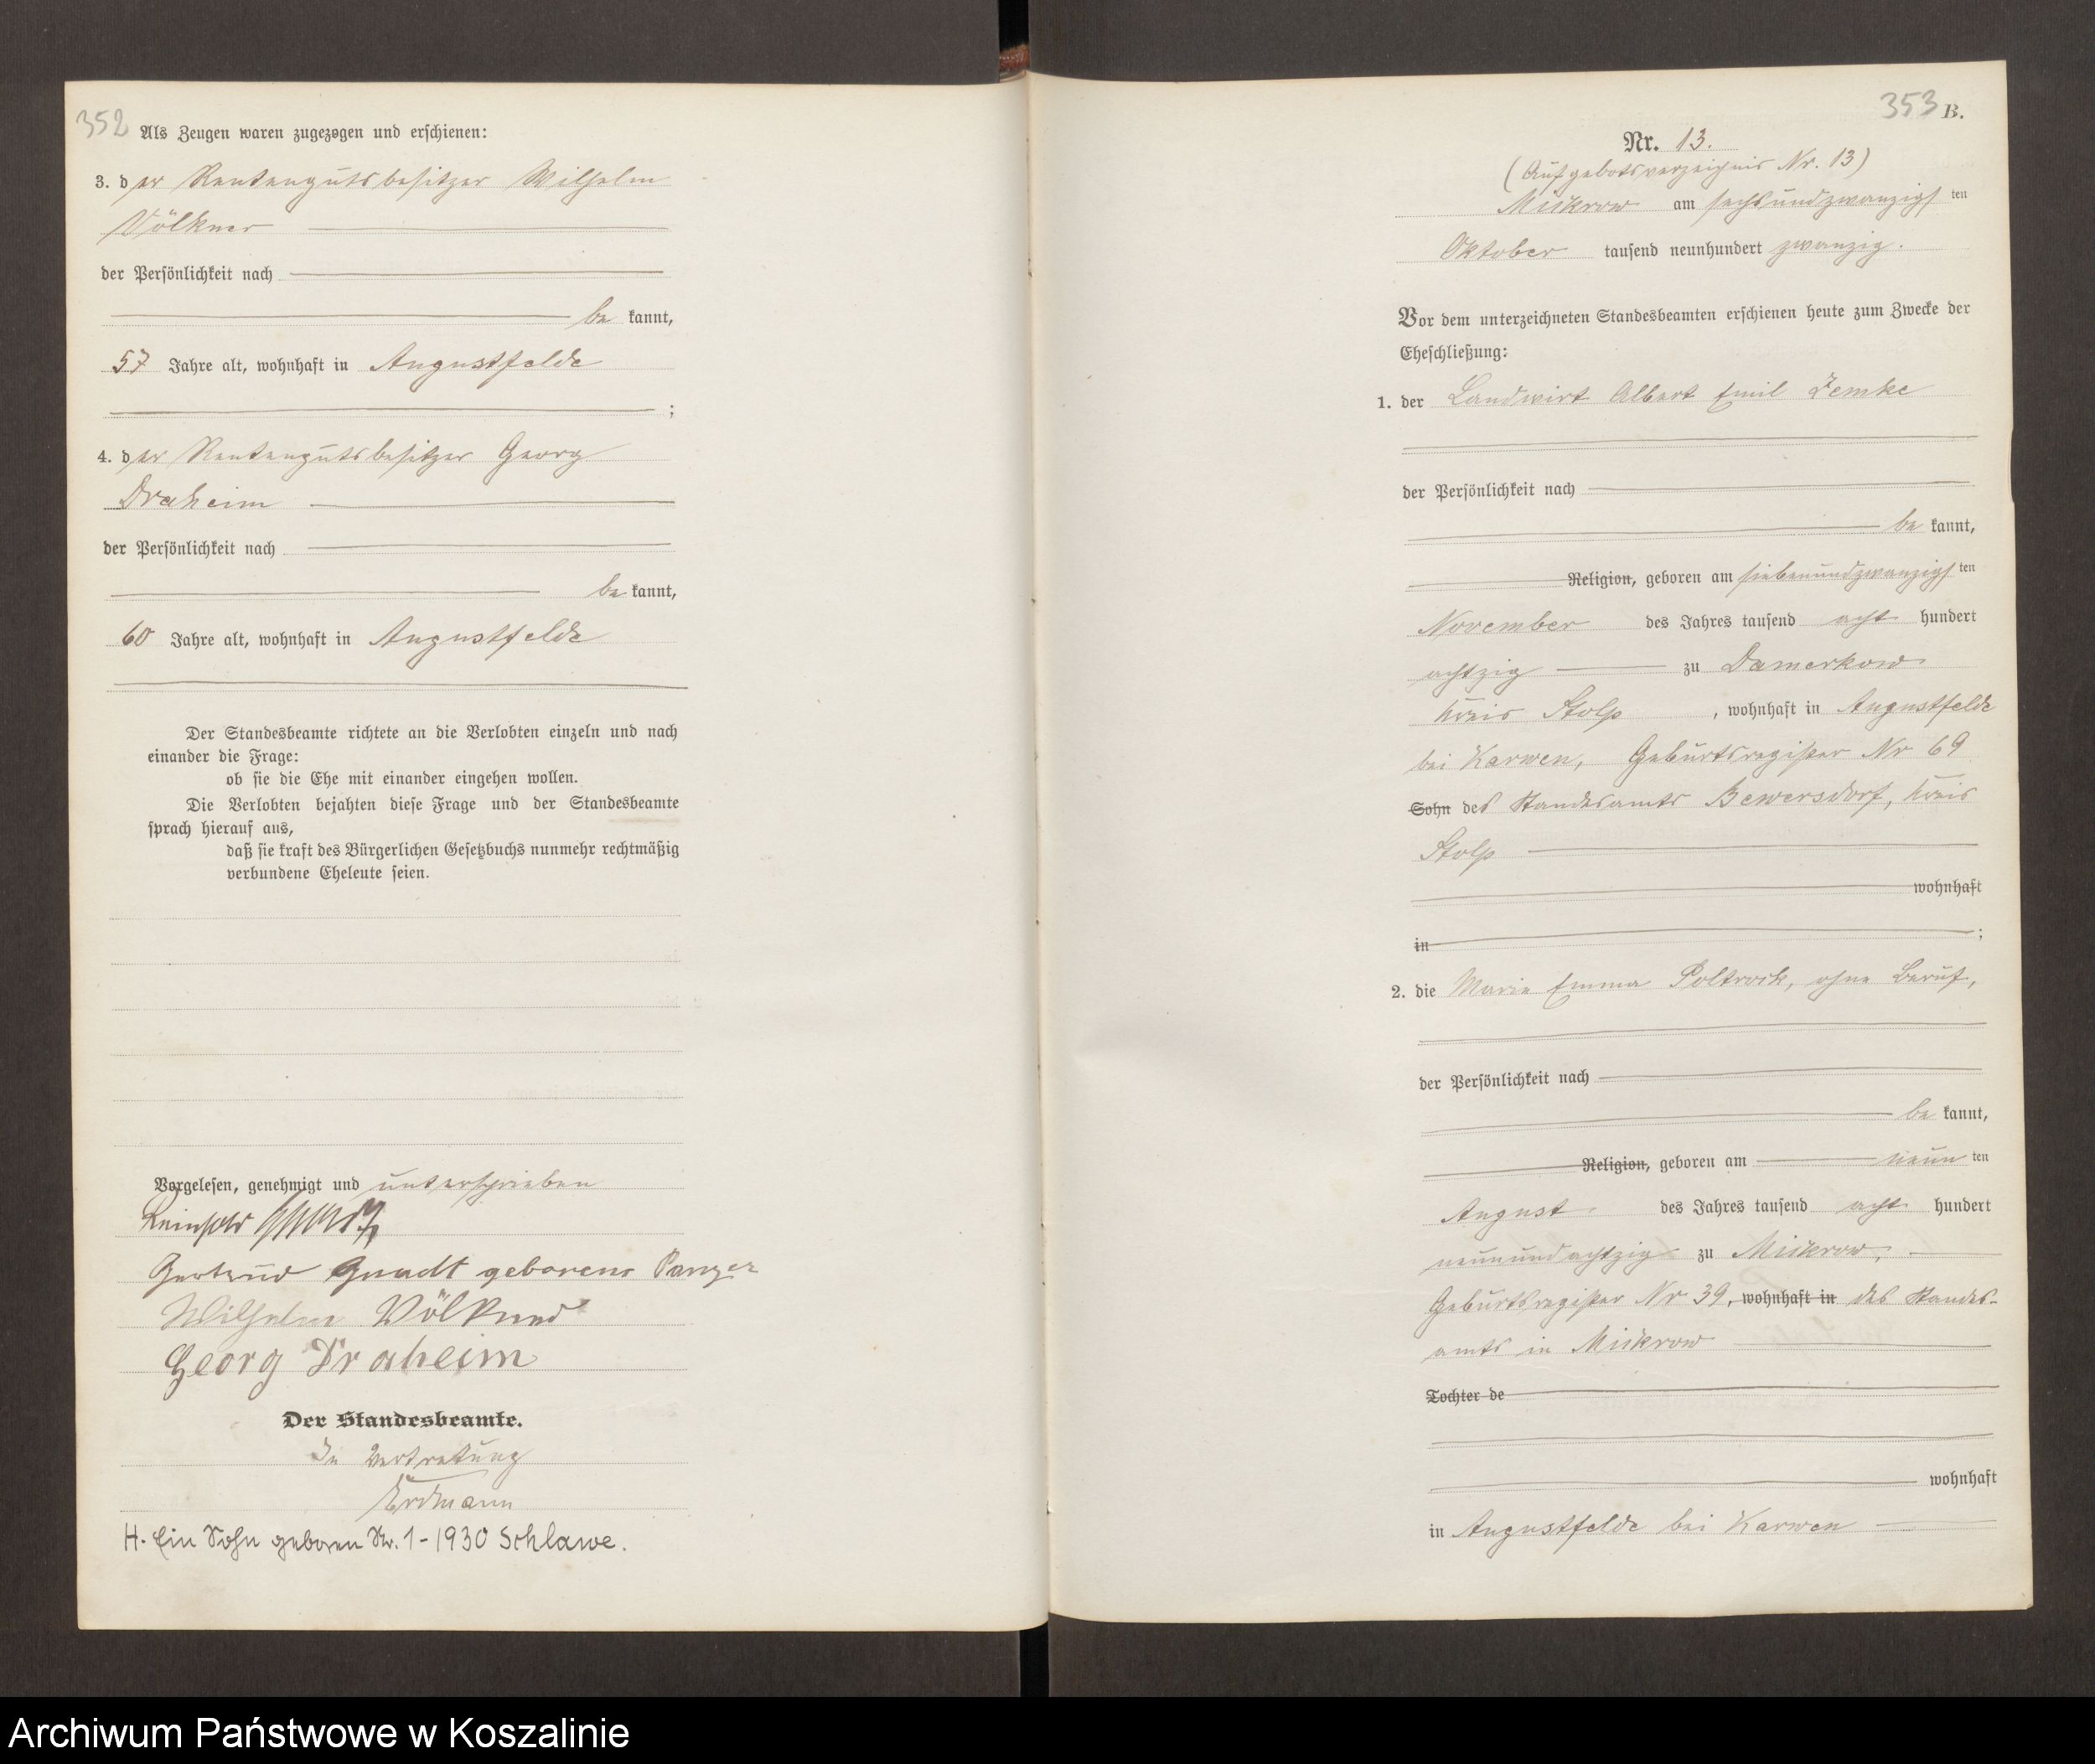 352 Als Zeugen waren zugezogen und erschienen:
3. der Rentengutsbesitzer Wilhelm
Völkner
der Persönlichkeit nach
be kannt,
57 Jahre alt, wohnhaft in Augustfelde
;
4. der Rentengutsbesitzer Georg
Draheim
der Persönlichkeit nach
be kannt,
60 Jahre alt, wohnhaft in Augustfelde
Der Standesbeamte richtete an die Verlobten einzeln und nach
einander die Frage:
ob sie die Ehe mit einander eingehen wollen.
Die Verlobten bejahten diese Frage und der Standesbeamte
sprach hierauf aus,
daß sie kraft des Bürgerlichen Gesetzbuchs nunmehr rechtmäßig
verbundene Eheleute seien.
Vorgelesen, genehmigt und unterschrieben
Reinhold
Gertrud Gnadt geborene Panzer
Wilhelm Völkner
Georg Draheim
Der Standesbeamte.
In Vertretung
Erdmann
H. Ein Sohn geboren Nr. 1-1930 Schlawe.
353 B.
Nr. 13.
(Aufgebotsverzeignis Nr. 13)
Mickrow am sechsundzwanzigs ten
Oktober tausend neunhundert zwanzig.
Vor dem unterzeichneten Standesbeamten erschienen heute zum Zwecke der
Eheschließung:
1. der Landwirt Albert Emil Zemke
der Persönlichkeit nach
be kannt,
Religion, geboren am siebenundzwanzigs ten
November des Jahres tausend acht hundert
achtzig zu Damerkow
Kreis Stolp, wohnhaft in Augustfelde
bei Karwen, Geburtsregister Nr 69
Sohn des Standesamts Bewersdorf, Kreis
Stolp
wohnhaft
in ;
2. die Marie Emma Poltrock, ohne Beruf,
der Persönlichkeit nach
be kannt,
Religion, geboren am neun ten
August des Jahres tausend acht hundert
neunundachtzig zu Mickrow,
Geburtsregister Nr 39, wohnhaft in des Standes-
amts in Mickrow
Tochter de
wohnhaft
in Augustfelde bei Karwen
Archiwum Państwowe w Koszalinie